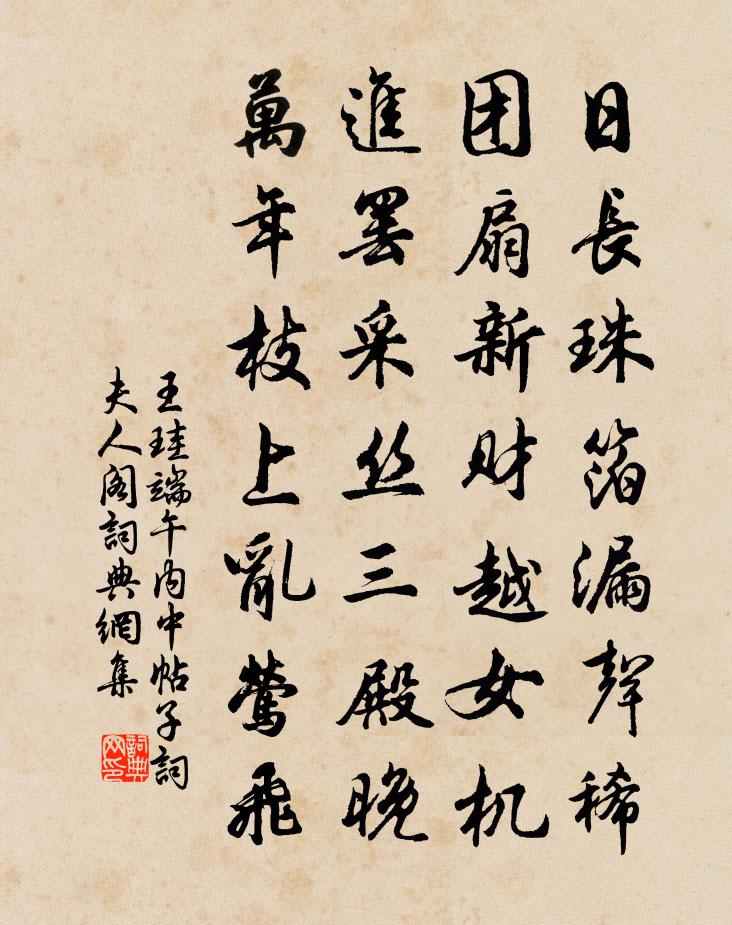 日長珠箔漏聲稀
团扇新財越女机
進罢采丝三殿晚
萬年枝上亂鶯飛
王珪端午内中帖子詞
夫人阁詞典網集
詞典网印